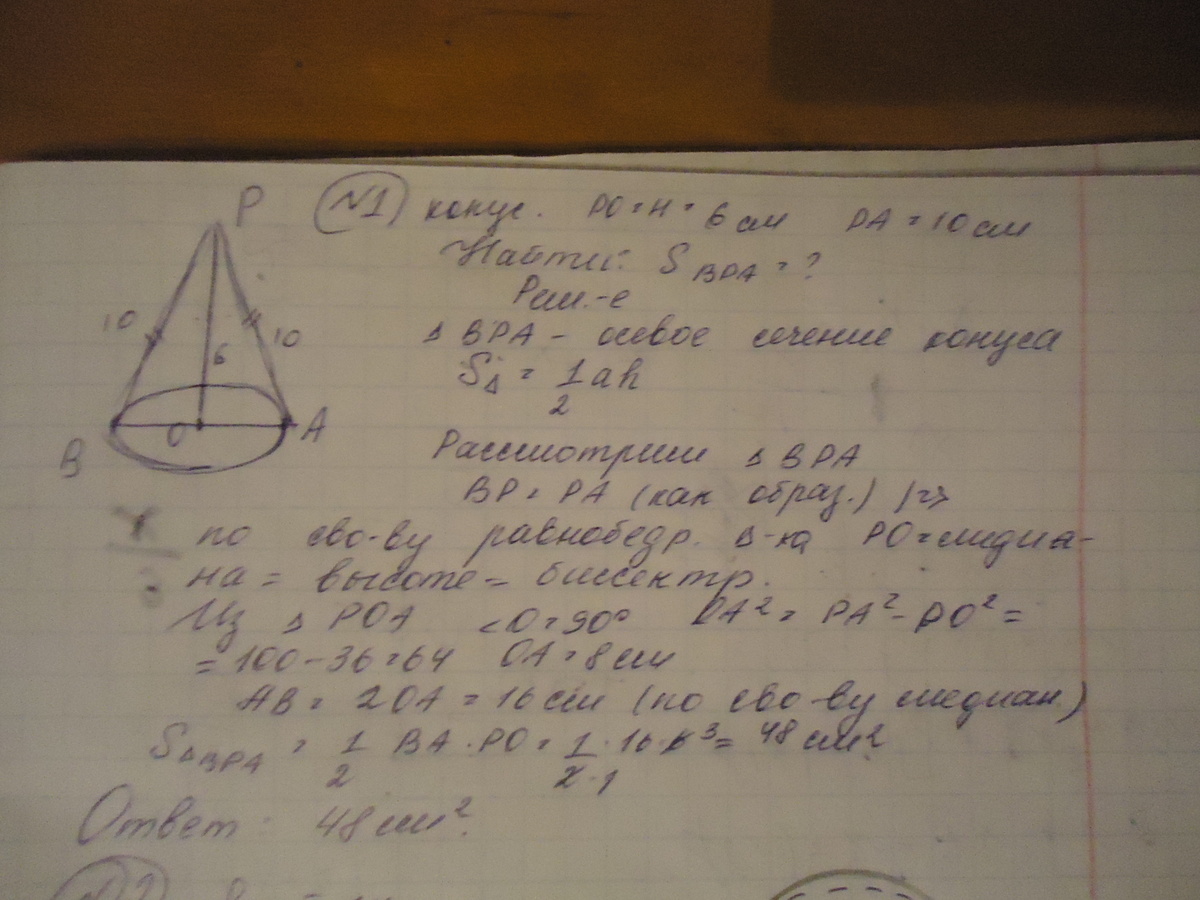 P
10
10
6
B
O
A
№1 конус. PO = H = 6 см PA = 10 см
Найти: S BPA = ?
Реш.-е
Δ BPA - осевое сечение конуса
SΔ = 1/2 ah
Рассмотрим Δ BPA
BP = PA (как образ.) | =>
по сво-ву равнобедр. Δ-ка PO = медиа-
на = высоте = биссектр.
Из Δ POA ∠O = 90° OA² = PA² - PO² =
= 100 - 36 = 64 OA = 8 см
AB = 2OA = 16 см (по сво-ву медиан)
SΔBPA = 1/2 BA · PO = 1/2·1 · 16 · 6 3 = 48 см²
Ответ: 48 см².